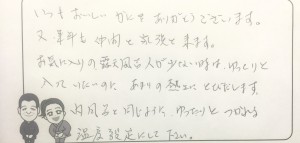 いつもおいしいかにをありがとうございます。
又年末も仲間と来ます。
お気に入りの露天風呂人が少ない時は、ゆっくりと
入っていたいのに、あまりの熱さにとび出します。
内風呂と同じように、ゆったりとつかれる
温度設定にして下さい。